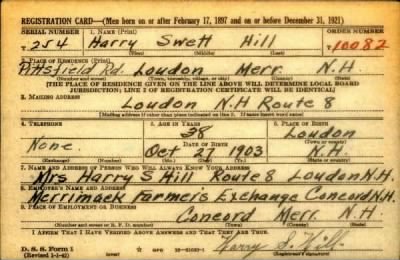 REGISTRATION CARD—(Men born on or after February 17, 1897 and on or before December 31, 1921)
SERIAL NUMBER 1. NAME (Print) ORDER NUMBER
254 Harry Swett Hill 10082
(First) (Middle) (Last)
2. PLACE OF RESIDENCE (Print)
Pittsfield Rd. Loudon Merr. N.H.
(Number and street) (Town, township, village, or city) (County) (State)
[THE PLACE OF RESIDENCE GIVEN ON THE LINE ABOVE WILL DETERMINE LOCAL BOARD
JURISDICTION; LINE 2 OF REGISTRATION CERTIFICATE WILL BE IDENTICAL]
3. MAILING ADDRESS
Loudon N.H Route 8
[Mailing address if other than place indicated on line 2. If same insert word same]
4. TELEPHONE 5. AGE IN YEARS 6. PLACE OF BIRTH
38 Loudon
None. DATE OF BIRTH
Oct 27 1903 N.H.
7. NAME AND ADDRESS OF PERSON WHO WILL ALWAYS KNOW YOUR ADDRESS
Mrs Harry S Hill Route 8 Loudon N.H.
8. EMPLOYER'S NAME AND ADDRESS
Merrimack Farmer's Exchange Concord N.H.
9. PLACE OF EMPLOYMENT OR BUSINESS
Concord Merr. N.H.
(Number and street or R. F. D. number) (Town) (County) (State)
I AFFIRM THAT I HAVE VERIFIED ABOVE ANSWERS AND THAT THEY ARE TRUE.
D. S. S. Form 1
(Revised 1-1-42) Harry S. Hill